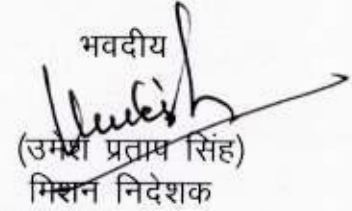 भवदीय
(उमेश प्रताप सिंह)
मिशन निदेशक